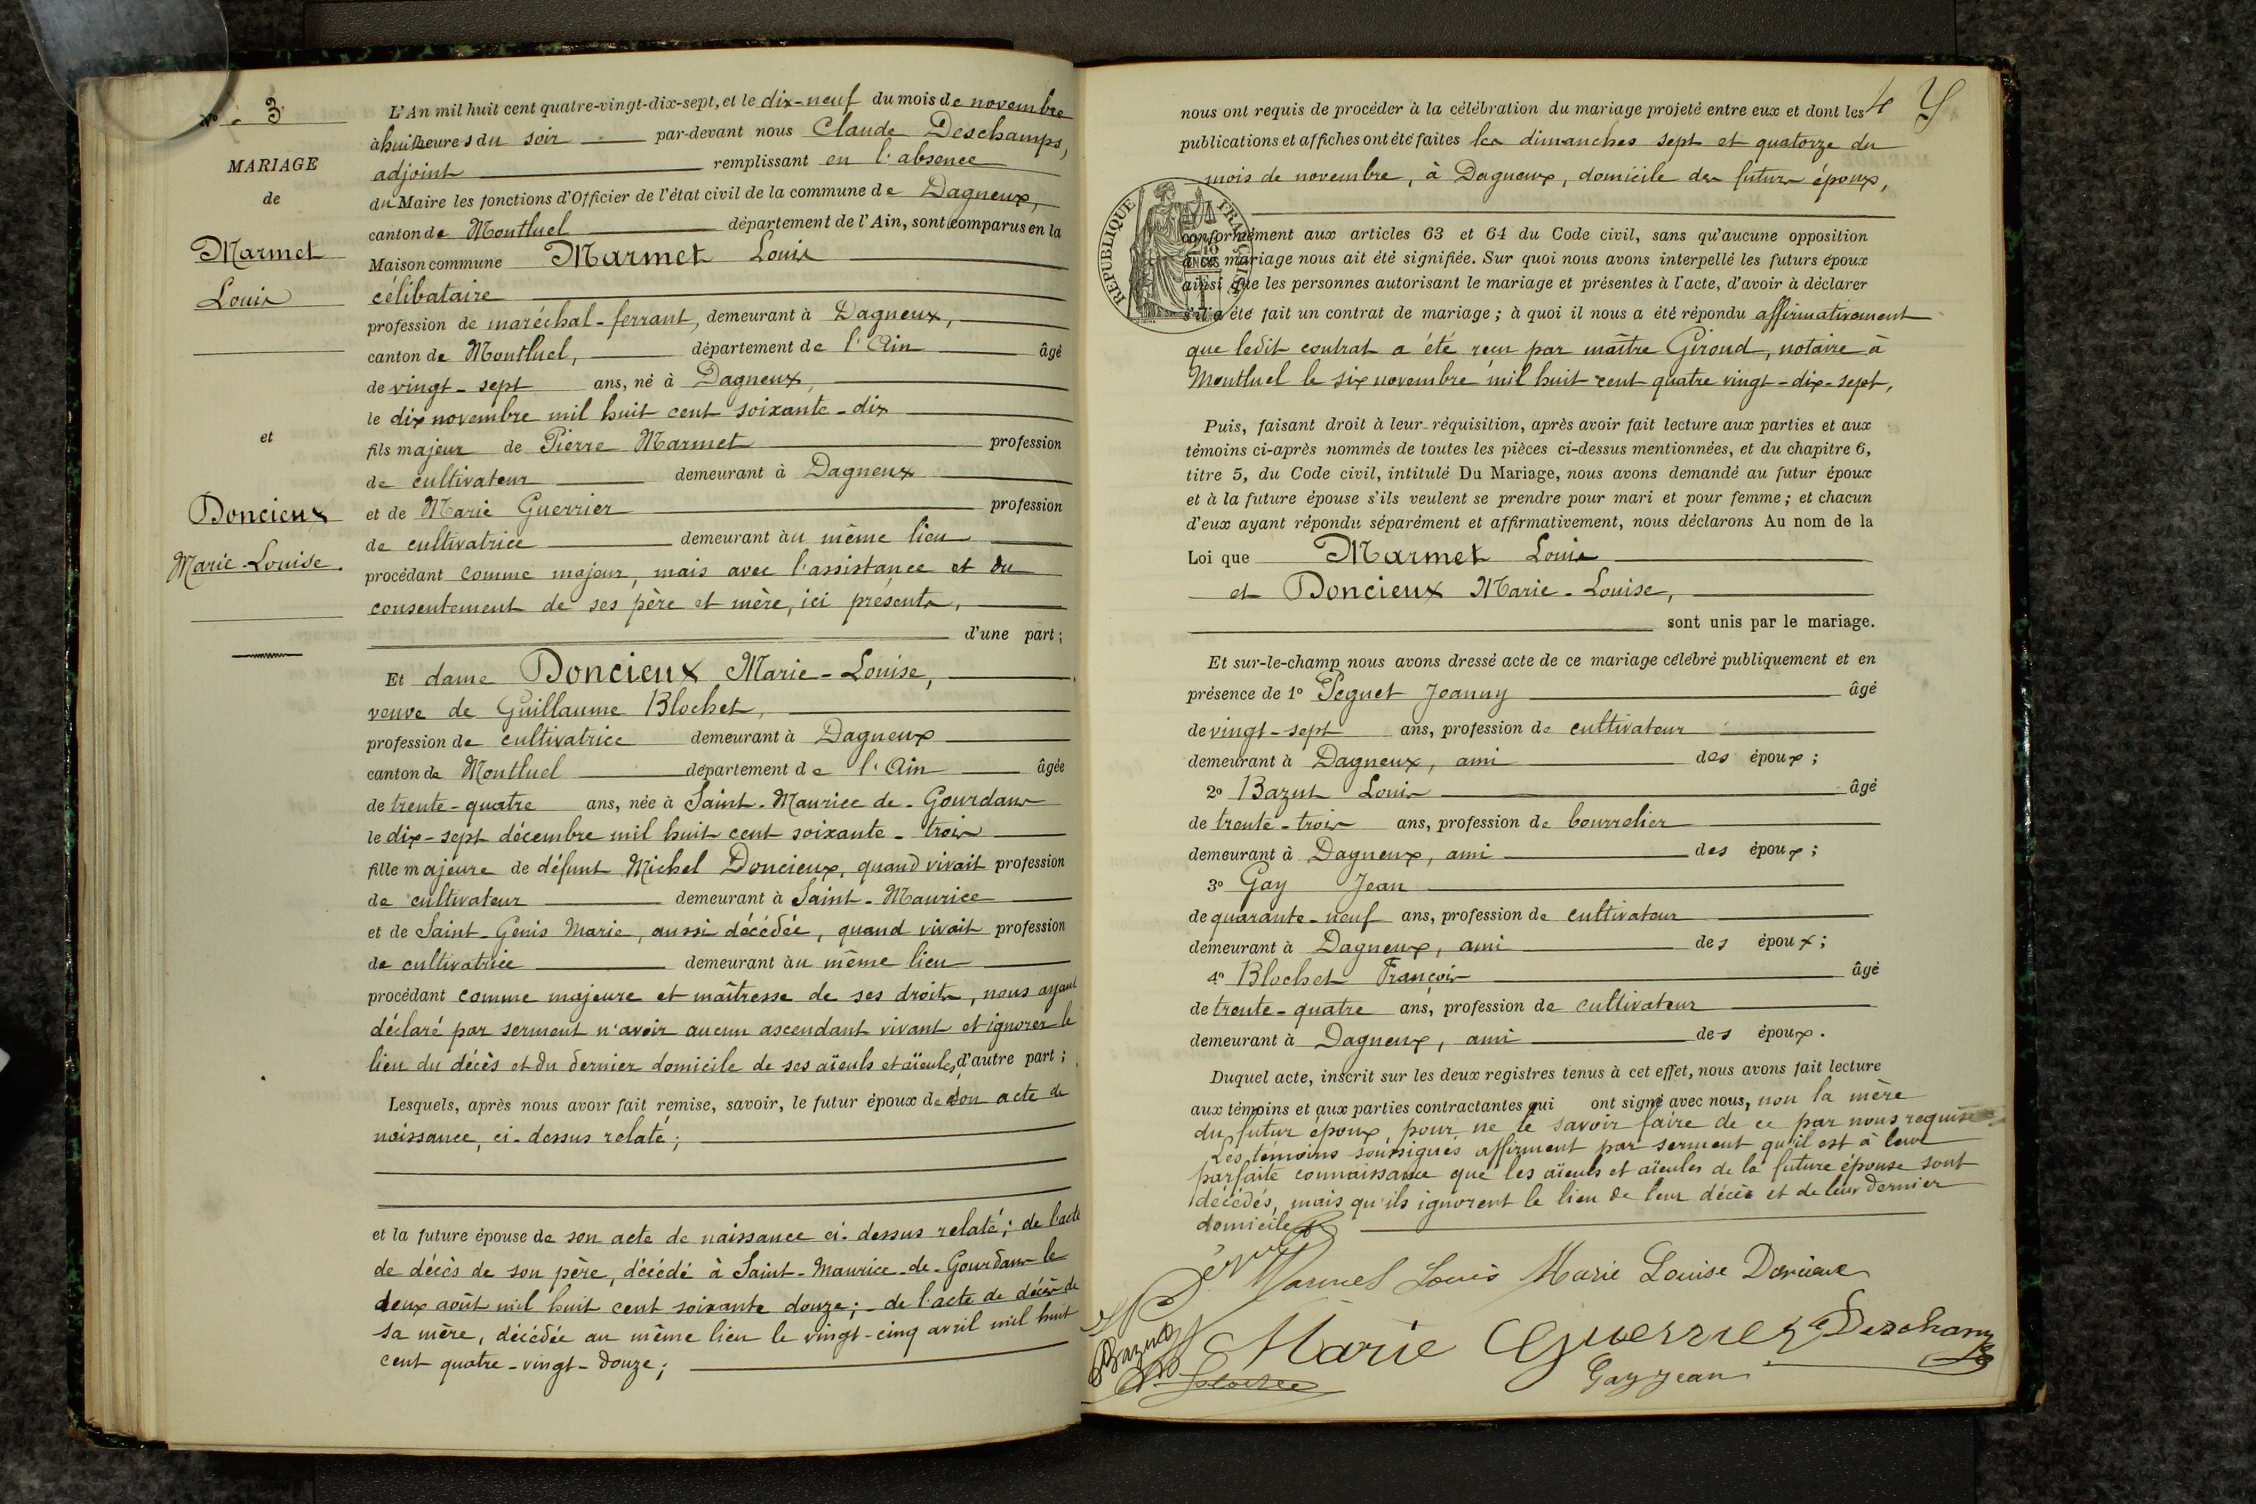 N° 3
MARIAGE
de
Marmet
Louis
et
Doncieux
Marie-Louise.
L'An mil huit cent quatre-vingt-dix-sept, et le dix-neuf du mois de novembre
à huit heures du soir par-devant nous Claude Deschamps,
adjoint remplissant en l'absence
du Maire les fonctions d'Officier de l'état civil de la commune de Dagneux,
canton de Montluel département de l'Ain, sont comparus en la
Maison commune Marmet Louis
célibataire
profession de maréchal-ferrant, demeurant à Dagneux,
canton de Montluel, département de l'Ain âgé
de vingt-sept ans, né à Dagneux,
le dix novembre mil huit cent soixante-dix
fils majeur de Pierre Marmet profession
de cultivateur demeurant à Dagneux
et de Marie Guerrier profession
de cultivatrice demeurant au même lieu
procédant comme majeur, mais avec l'assistance et du
consentement de ses père et mère, ici présents,
d'une part;
Et dame Doncieux Marie-Louise,
veuve de Guillaume Blochet,
profession de cultivatrice demeurant à Dagneux
canton de Montluel département de l'Ain âgée
de trente-quatre ans, née à Saint-Maurice de-Gourdans
le dix-sept décembre mil huit cent soixante-trois
fille majeure de défunt Michel Doncieux, quand vivait profession
de cultivateur demeurant à Saint-Maurice
et de Saint-Genis Marie, aussi décédée, quand vivait profession
de cultivatrice demeurant au même lieu
procédant comme majeure et maîtresse de ses droits, nous ayant
déclaré par serment n'avoir aucun ascendant vivant et ignorer le
lieu du décès et du dernier domicile de ses aïeuls et aïeules, d'autre part;
Lesquels, après nous avoir fait remise, savoir, le futur époux de son acte de
naissance, ci-dessus relaté;
et la future épouse de son acte de naissance ci-dessus relaté; de l'acte
de décès de son père, décédé à Saint-Maurice-de-Gourdans le
deux août mil huit cent soixante douze; - de l'acte de décès de
sa mère, décédée au même lieu le vingt-cinq avril mil huit
cent quatre-vingt-douze;
4
nous ont requis de procéder à la célébration du mariage projeté entre eux et dont les
publications et affiches ont été faites les dimanches sept et quatorze du
mois de novembre, à Dagneux, domicile des futurs époux,
RÉPUBLIQUE FRANÇAISE
conformément aux articles 63 et 64 du Code civil, sans qu'aucune opposition
à ce mariage nous ait été signifiée. Sur quoi nous avons interpellé les futurs époux
ainsi que les personnes autorisant le mariage et présentes à l'acte, d'avoir à déclarer
s'il a été fait un contrat de mariage; à quoi il nous a été répondu affirmativement
que ledit contrat a été reçu par maître Giroud, notaire à
Montluel le six novembre mil huit cent quatre vingt-dix-sept,
Puis, faisant droit à leur réquisition, après avoir fait lecture aux parties et aux
témoins ci-après nommés de toutes les pièces ci-dessus mentionnées, et du chapitre 6,
titre 5, du Code civil, intitulé Du Mariage, nous avons demandé au futur époux
et à la future épouse s'ils veulent se prendre pour mari et pour femme; et chacun
d'eux ayant répondu séparément et affirmativement, nous déclarons Au nom de la
Loi que Marmet Louis
et Doncieux Marie-Louise,
sont unis par le mariage.
Et sur-le-champ nous avons dressé acte de ce mariage célébré publiquement et en
présence de 1° Peguet Joanny âgé
de vingt-sept ans, profession de cultivateur
demeurant à Dagneux, ami des époux;
2° Bazut Louis âgé
de trente-trois ans, profession de bourrelier
demeurant à Dagneux, ami des époux;
3° Gay Jean
de quarante-neuf ans, profession de cultivateur
demeurant à Dagneux, ami des époux;
4° Blochet François âgé
de trente-quatre ans, profession de cultivateur
demeurant à Dagneux, ami des époux.
Duquel acte, inscrit sur les deux registres tenus à cet effet, nous avons fait lecture
aux témoins et aux parties contractantes qui ont signé avec nous, non la mère
du futur époux, pour ne le savoir faire de ce par nous requise
Les témoins soussignés affirment par serment qu'il est à leur
parfaite connaissance que les aïeuls et aïeules de la future épouse sont
décédés, mais qu'ils ignorent le lieu de leur décès et de leur dernier
domicile
Marmet Louis Marie Louise Doncieux
Bazut
Marie Guerrier Deschamps
Gay Jean